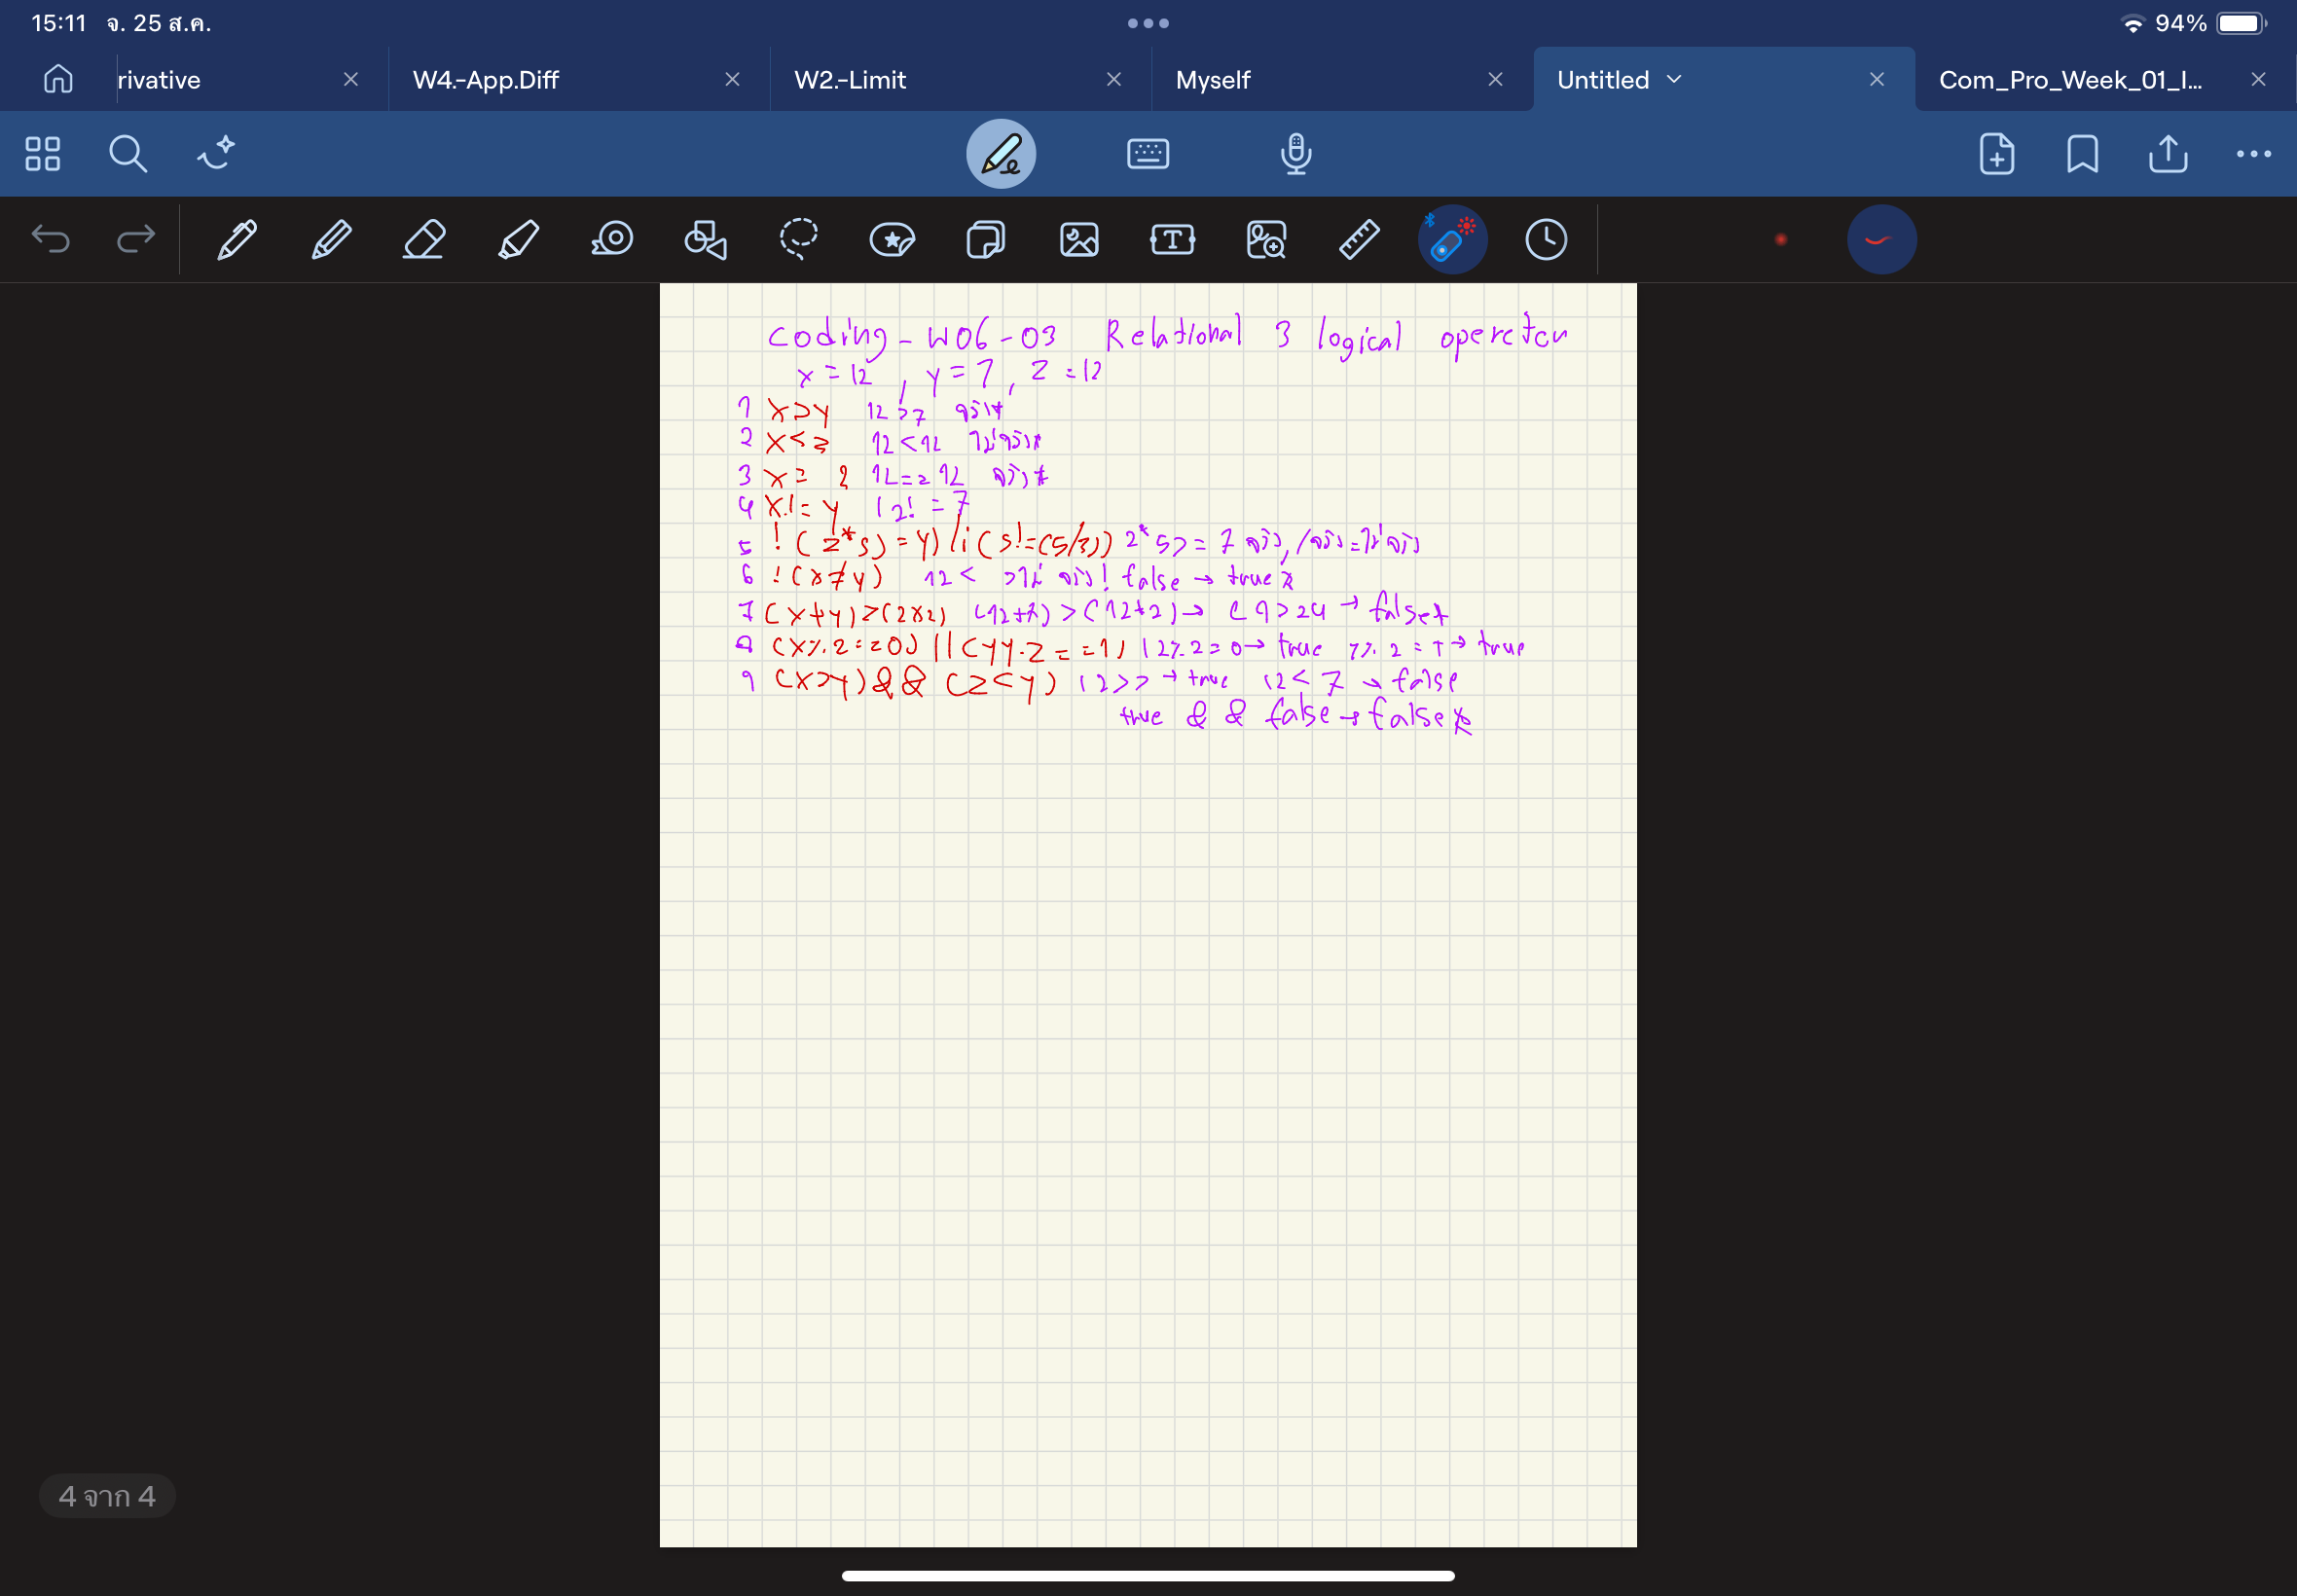 15:11 จ. 25 ส.ค. 94%
rivative W4.-App.Diff W2.-Limit Myself Untitled Com_Pro_Week_01_I...
Coding - W06 - 03 Relational 3 logical
x = 12 , y = 7 , Z = 12
1 x > y 12 > 7 จริง
2 x < z 12 < 12 ไม่จริง
3 x = 2 12 == 12 จริง
4 x != y 12! = 7
5 ! ( 2*5) = y) || ( 5!=(5/3)) 2*5 > = 7 จริง, จริง = ไม่จริง
6 ! ( x ≠ y ) 12 < ไม่ จริง ! false → true
7 ( x + y ) > (2x2) (12+7) > (12*2) → (9 > 24 → false
8 (x%.2 == 0) || (yy.2 == 1) 12%.2 = 0 → true 7%.2 = 1 → true
9 (x > y) && (z < y) 12 > 7 → true 12 < 7 → false
true & & false → false
4 จาก 4